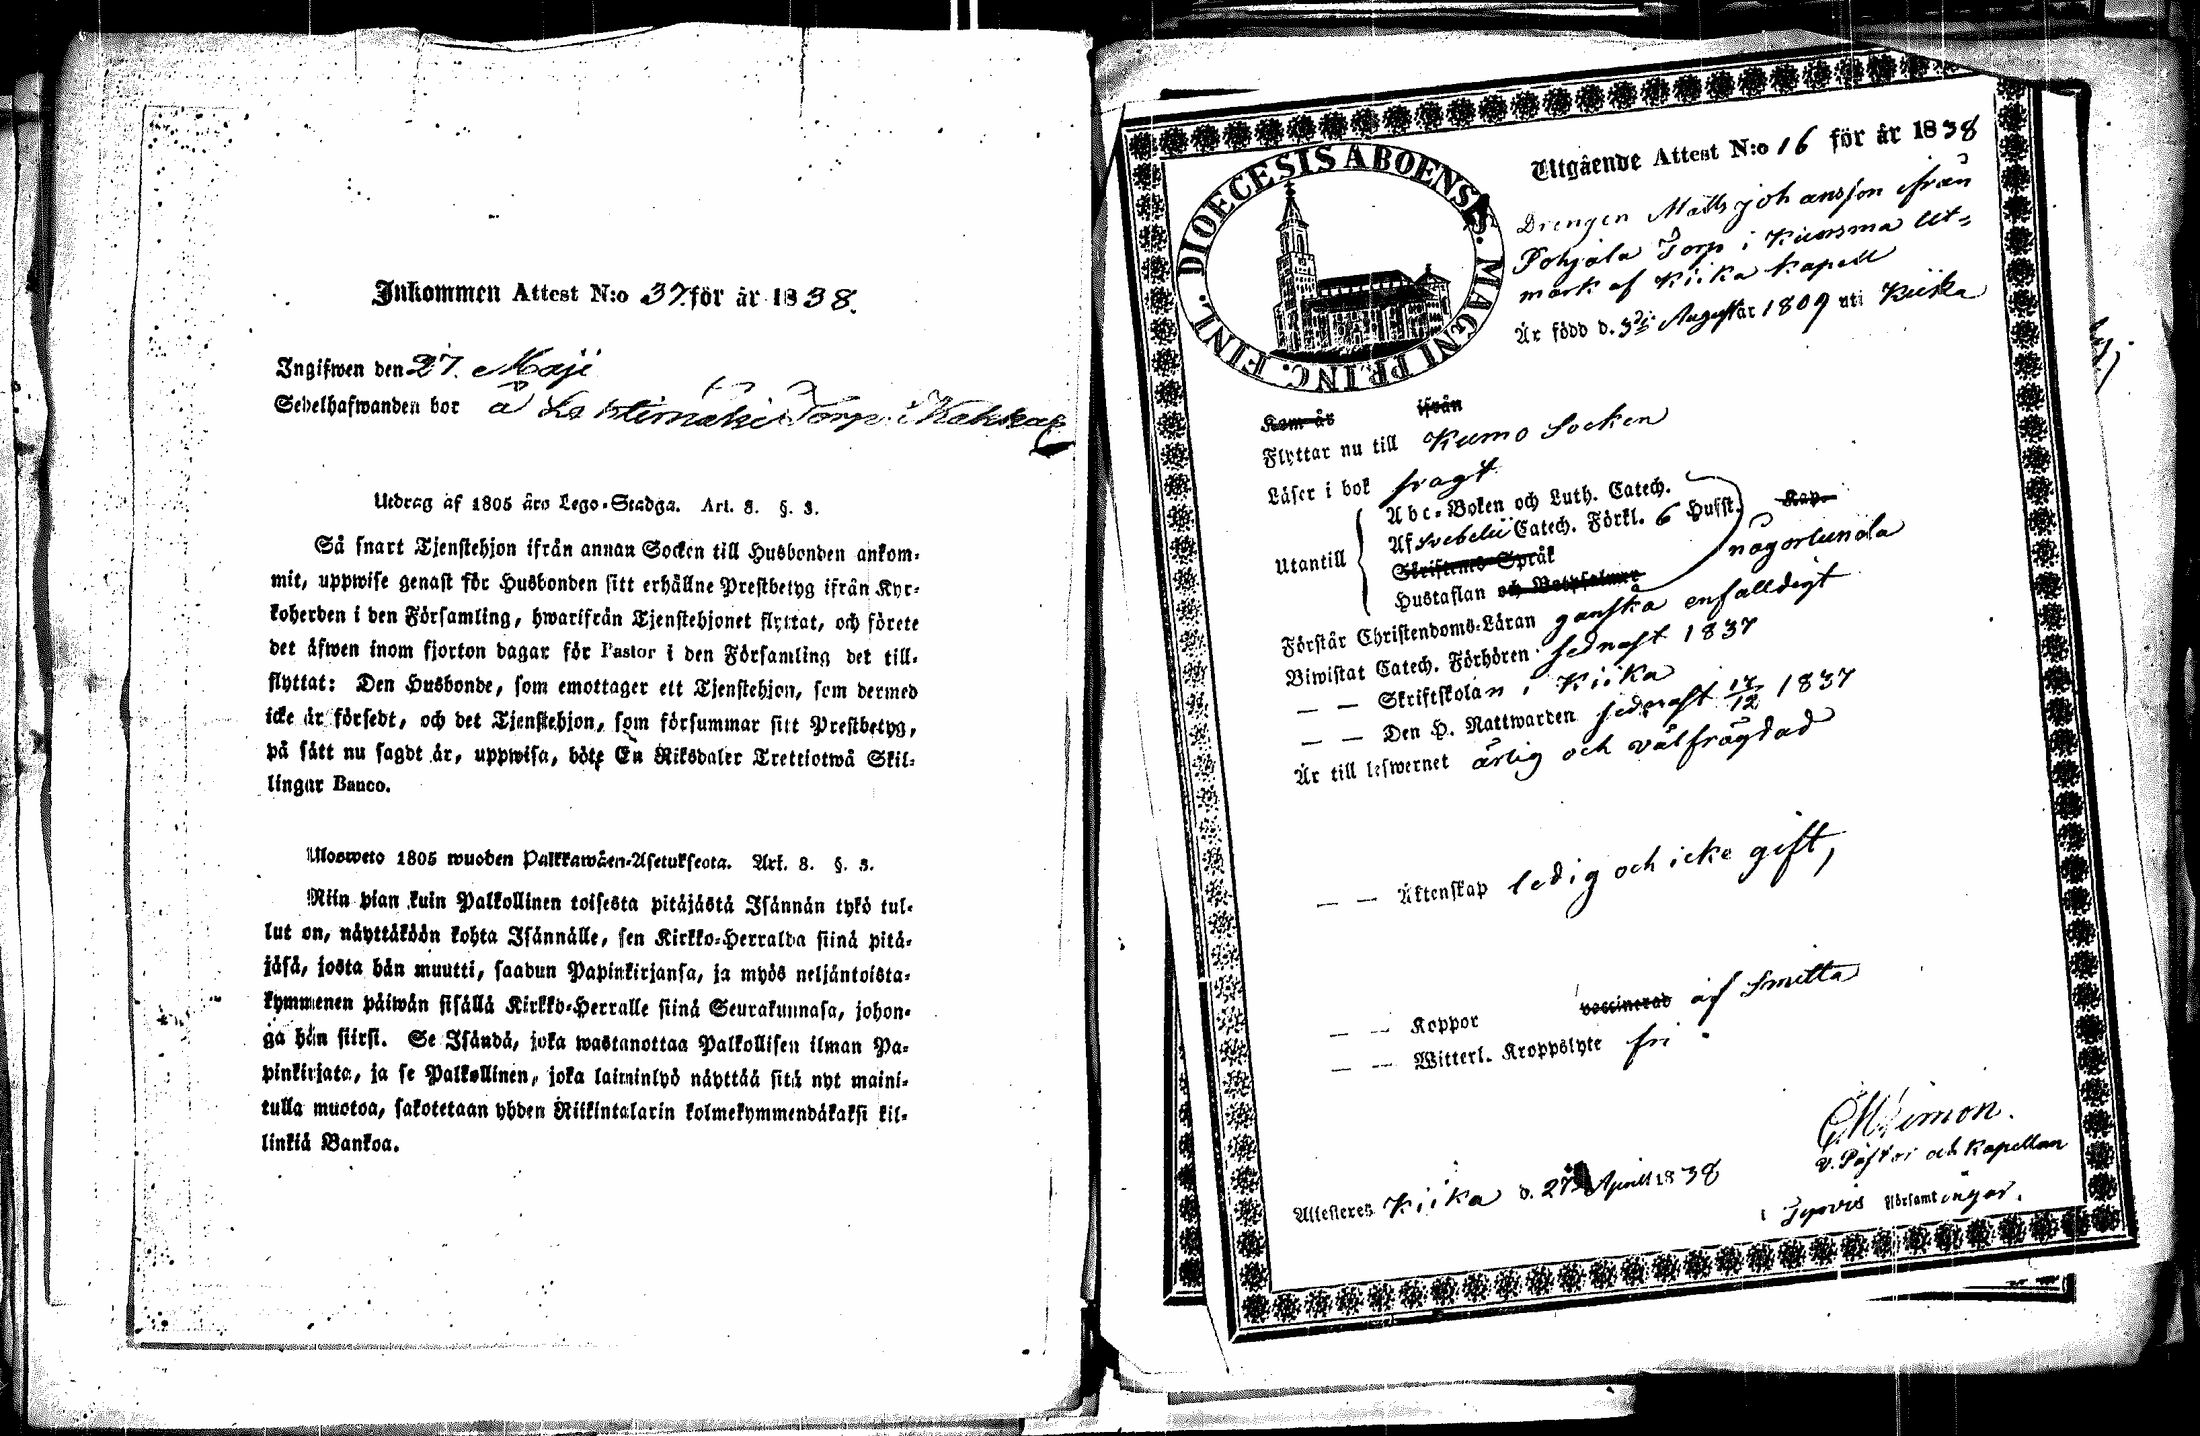 Inkommen Attest N:o 37. för år 1838.
Ingifwen den 27. Maji
Sedelhafwanden bor å Torp i
Utdrag af 1805 års Lego-Stadga. Art. 8. §. 3.
Så snart Tjenstehjon ifrån annan Socken till Husbonden ankom-
mit, uppwise genast för Husbonden sitt erhållne Prestbetyg ifrån Kyr-
koherden i den Församling, hwarifrån Tjenstehjonet flyttat, och förete
det äfwen inom fjorton dagar för Pastor i den Församling det till-
flyttat: Den Husbonde, som emottager ett Tjenstehjon, som dermed
icke är försedt, och det Tjenstehjon, som försummar sitt Prestbetyg,
på sätt nu sagdt är, uppwisa, böte En Riksdaler Trettiotwå Skil-
lingar Banco.
Ulosweto 1805 wuoden Palkkawäen-Asetuksesta. Art. 8. §. 3.
Niin pian kuin Palkollinen toisesta pitäjästä Isännän tykö tul-
lut on, näyttäköön kohta Isännälle, sen Kirkko-Herralda siinä pitä-
jäsä, josta hän muutti, saadun Papinkirjansa, ja myös neljäntoista-
kymmenen päiwän sisällä Kirkko-Herralle siinä Seurakunnasa, johon-
ga hän siirsi. Se Isändä, joka wastanottaa Palkollisen ilman Pa-
pinkirjata, ja se Palkollinen, joka laiminlyö näyttää sitä nyt maini-
tulla muotoa, sakotetaan yhden Riikintalarin kolmekymmendäkaksi kil-
linkiä Bankoa.
DIOECESIS ABOENSIS. MAGNI PRINC. FINL.
Utgående Attest N:o 16 för år 1838
Drengen Matts Johansson ifrån
Pohjala Torp i Kiursma Ut-
mark af Kiika Kapell
Är född d. 3 August år 1809 uti Kiika
Kom år ifrån
Flyttar nu till Kumo Socken
Läser i bok svagt
Utantill
Abc-Boken och Luth. Catech.
Af Svebelii Catech. Förkl. 6 Hufst. Kap.
Skriftens Språk någorlunda
Hustaflan och Botpsalmer
Förstår Christendoms-Läran ganska enfalldigt
Biwistat Catech. Förhören sednast 1837
— — Skriftskolan i Kiika
— — Den H. Nattwarden sednast 17/12 1837
Är till lefwernet ärlig och välfrägdad
— — Äktenskap ledig och icke gift,
— — Koppor vaccinerad af Smitta
— — Witterl. Kroppslyte fri.
Simon.
v. Pastor och Kapellan
Attesteres Kiika d. 27 April 1838
i Tyrvis Församlingar.